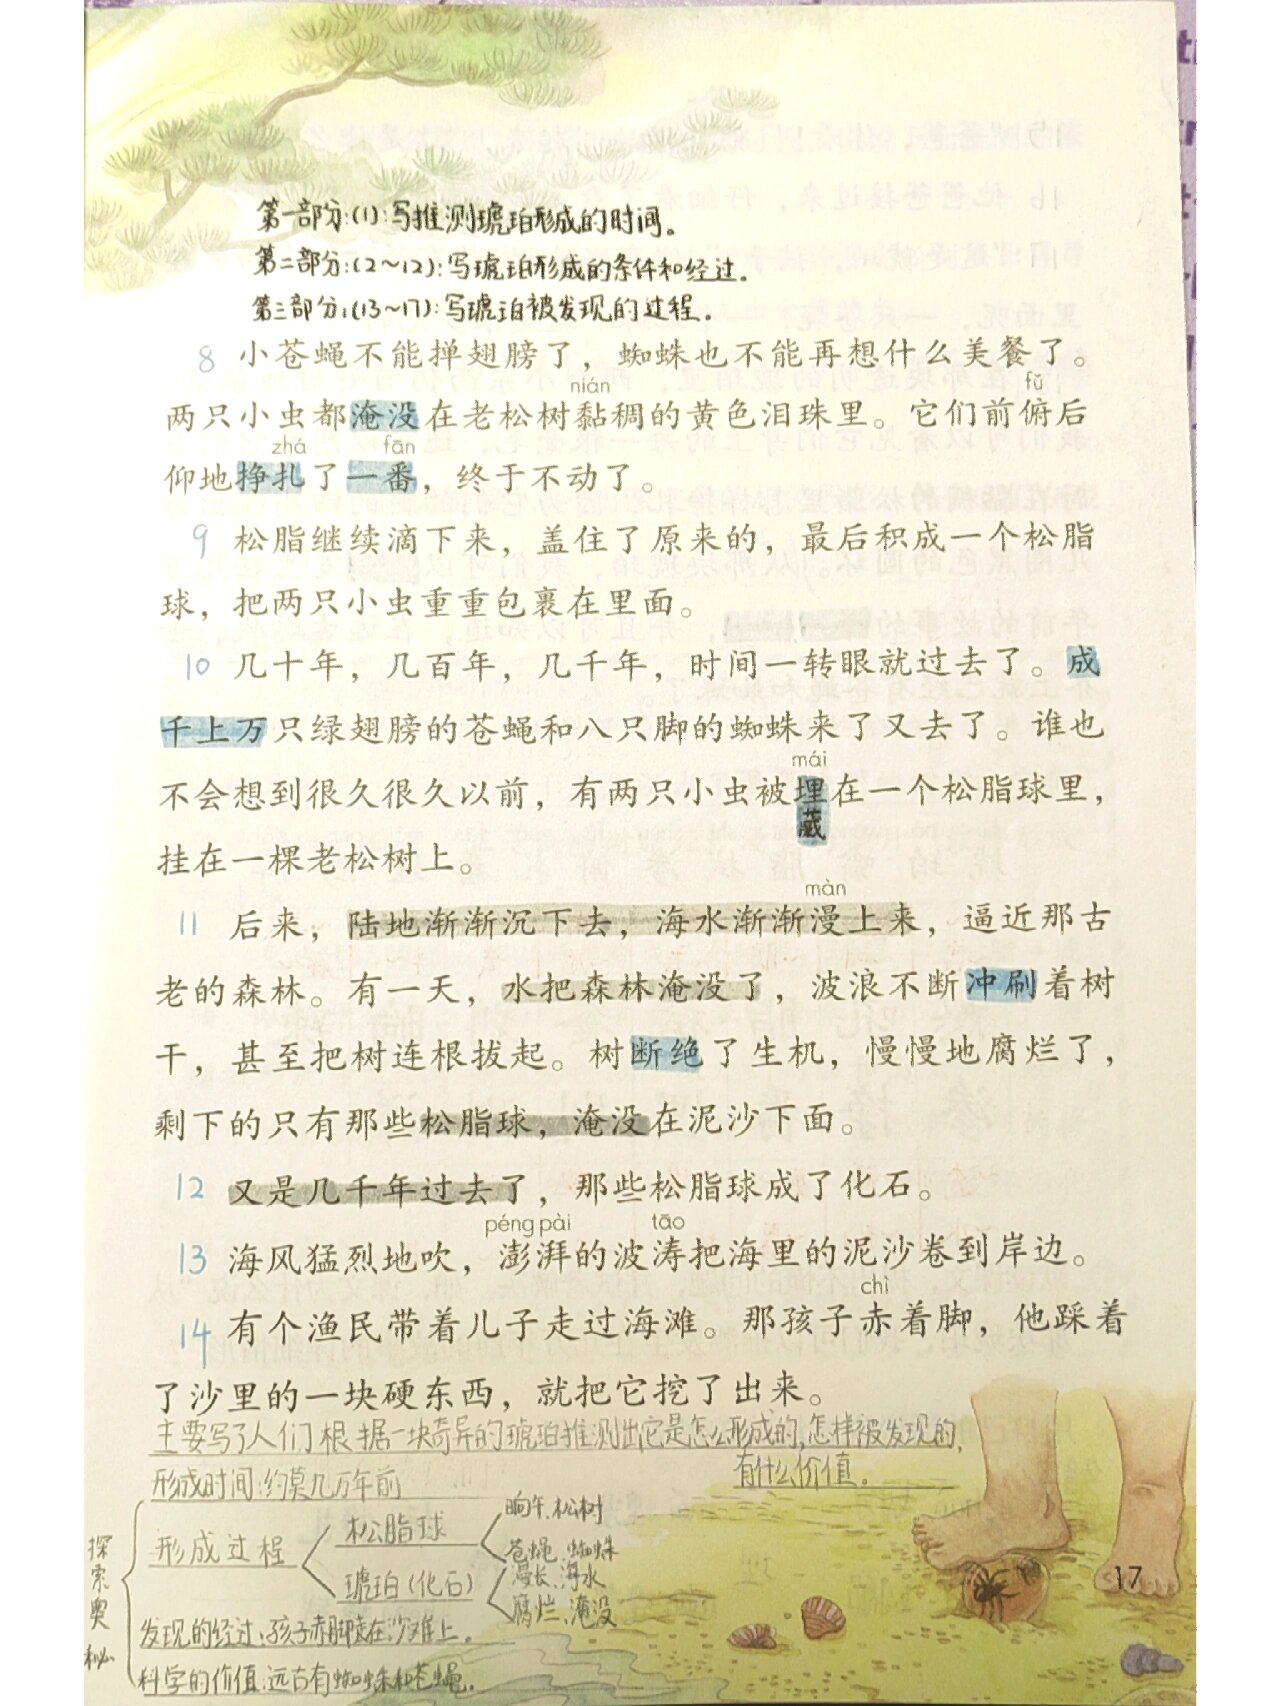 第一部分:(1):写推测琥珀形成的时间。
第二部分:(2~12):写琥珀形成的条件和经过。
第三部分:(13~17):写琥珀被发现的过程。
8 小苍蝇不能掸翅膀了，蜘蛛也不能再想什么美餐了。
nián fǔ
两只小虫都淹没在老松树黏稠的黄色泪珠里。它们前俯后
zhá fān
仰地挣扎了一番，终于不动了。
9 松脂继续滴下来，盖住了原来的，最后积成一个松脂
球，把两只小虫重重包裹在里面。
10 几十年，几百年，几千年，时间一转眼就过去了。成
千上万只绿翅膀的苍蝇和八只脚的蜘蛛来了又去了。谁也
mái
不会想到很久很久以前，有两只小虫被埋在一个松脂球里，
藏
挂在一棵老松树上。
màn
11 后来，陆地渐渐沉下去，海水渐渐漫上来，逼近那古
老的森林。有一天，水把森林淹没了，波浪不断冲刷着树
干，甚至把树连根拔起。树断绝了生机，慢慢地腐烂了，
剩下的只有那些松脂球，淹没在泥沙下面。
12 又是几千年过去了，那些松脂球成了化石。
péng pài tāo
13 海风猛烈地吹，澎湃的波涛把海里的泥沙卷到岸边。
chì
14 有个渔民带着儿子走过海滩。那孩子赤着脚，他踩着
了沙里的一块硬东西，就把它挖了出来。
主要写了人们根据一块奇异的琥珀推测出它是怎么形成的,怎样被发现的,
有什么价值.
形成时间:约莫几万年前
探索奥秘
形成过程
松脂球
晌午.松树
苍蝇.蜘蛛
琥珀(化石)
漫长.海水
腐烂.淹没
发现的经过:孩子赤脚走在沙滩上.
科学的价值:远古有蜘蛛和苍蝇.
17